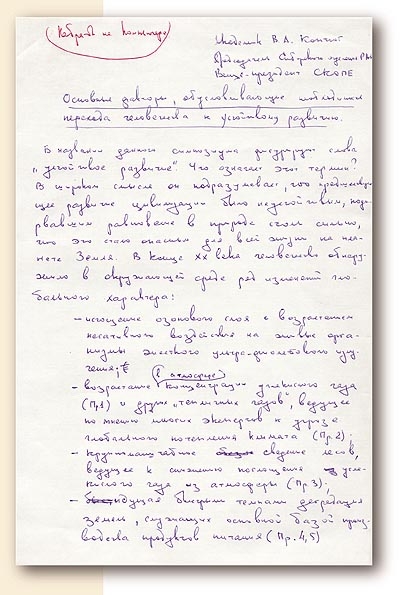 (Набрать на компьютере)
Академик В.А. Коптюг
Председатель Сибирского отделения РАН
Вице-президент СКОПЕ
Основные факторы, обусловливающие
перехода человечества к устойчивому развитию.
В названии данного симпозиума фигурируют слова
"устойчивое развитие". Что означает этот термин?
В широком смысле он подразумевает, что предшествую-
щее развитие цивилизации было неустойчивым, подо-
рвавшим равновесие в природе столь сильно,
что это стало опасным для всей жизни на пла-
нете Земля. В конце XX века человечество обнару-
жило в окружающей среде ряд изменений гло-
бального характера:
- истощение озонового слоя с возрастанием
негативного воздействия на живые орга-
низмы жесткого ультра-фиолетового излу-
чения;
в атмосфере
- возрастание концентрации углекислого газа
(Пр.1) и других "тепличных газов", ведущее
по мнению многих экспертов к угрозе
глобального потепления климата (Пр.2);
- крупномасштабное сведение лесов,
ведущее к снижению поглощения угле-
кислого газа из атмосферы (Пр.3).
- идущая быстрыми темпами деградация
земель, служащих основной базой произ-
водства продуктов питания (Пр.4,5)